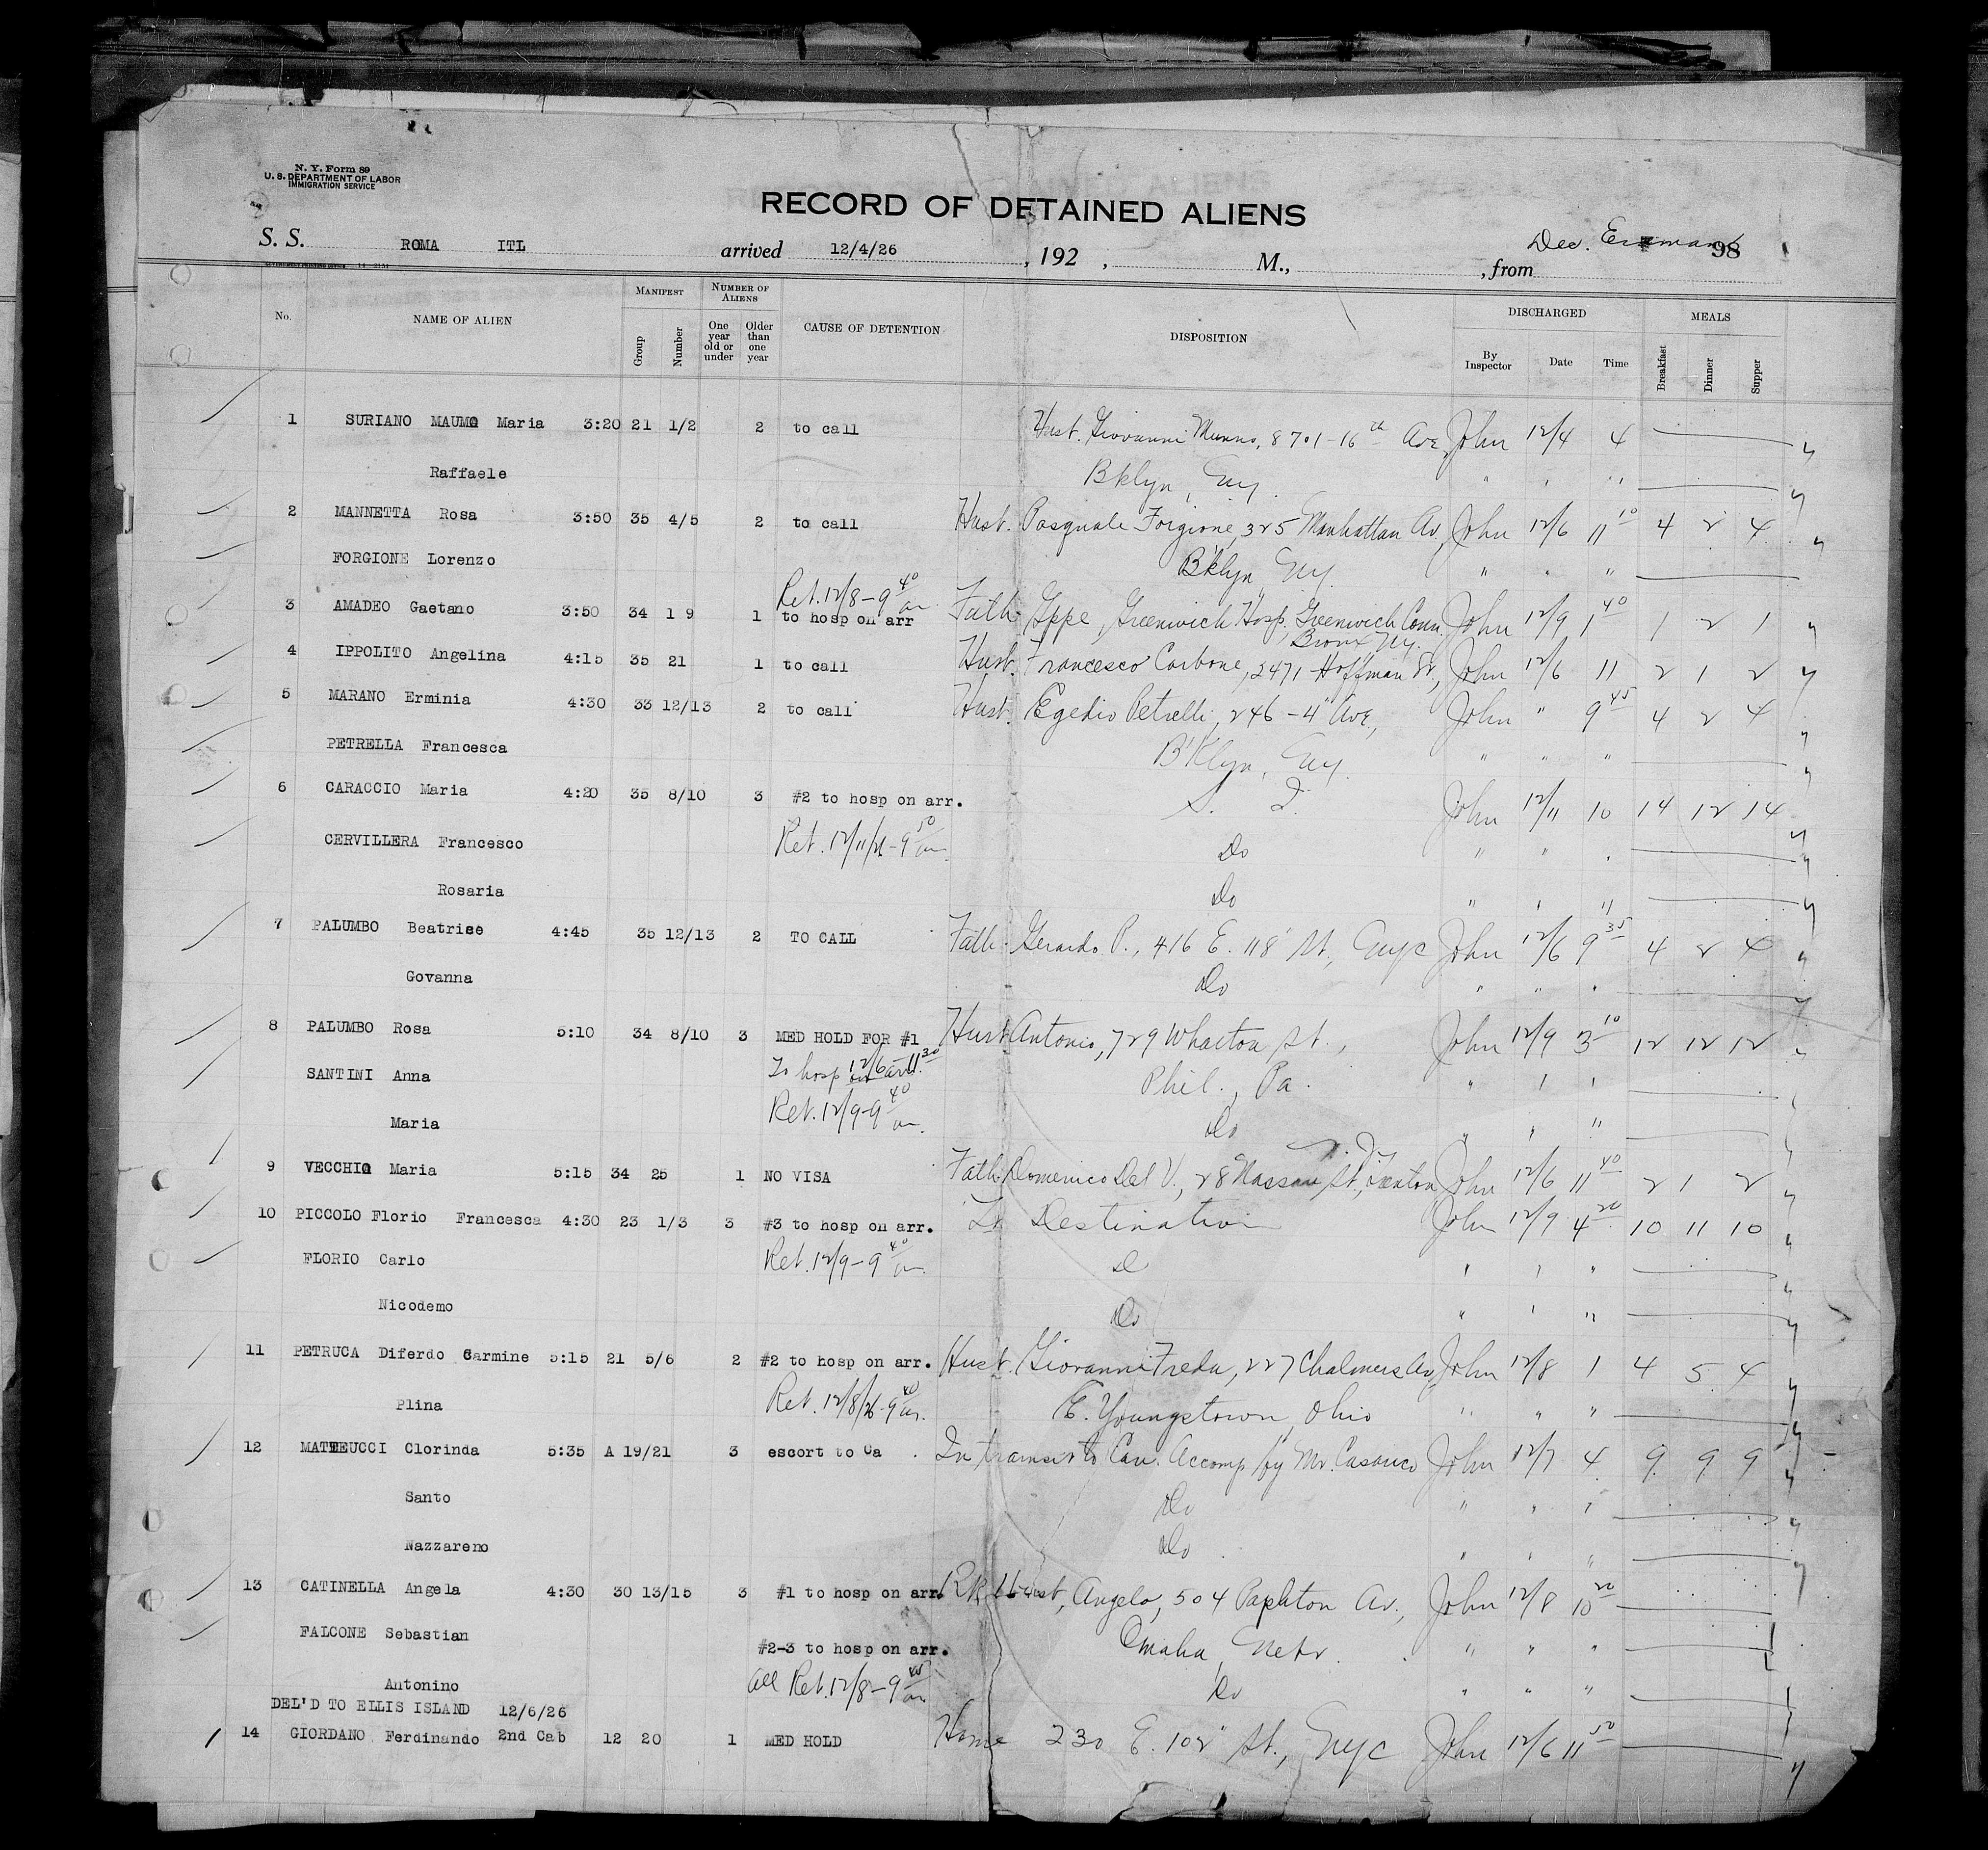 N. Y. Form 89
U. S. DEPARTMENT OF LABOR
IMMIGRATION SERVICE
RECORD OF DETAINED ALIENS
S. S. ROMA ITL arrived 12/4/26, 192 , M., , from Dec. 98
No. NAME OF ALIEN MANIFEST Group Number NUMBER OF ALIENS One year old or under Older than one year CAUSE OF DETENTION DISPOSITION DISCHARGED By Inspector Date Time MEALS Breakfast Dinner Supper
1 SURIANO MAUMO Maria 3:20 21 1/2 2 to call Hust. Giovanni Munno, 8701-16th Ave, John 12/4 4
Raffaele Bklyn, Ny. " " "
2 MANNETTA Rosa 3:50 35 4/5 2 to call Hust. Pasquale Forgione, 325 Manhattan Av., John 12/6 11 10 4 2 4
FORGIONE Lorenzo B'klyn Ny. " " "
Ret. 12/8-9 40 am.
3 AMADEO Gaetano 3:50 34 19 1 to hosp on arr Fath. Gppe, Greenwich Hosp. Greenwich Conn. John 12/9 1 40 1 2 1
Bronx Ny.
4 IPPOLITO Angelina 4:15 35 21 1 to call Hust. Francesco Carbone, 2471 Hoffman St., John 12/6 11 2 1 2
5 MARANO Erminia 4:30 33 12/13 2 to call Hust. Egedio Petrelli, 246-4" Ave, John " 9 45 4 2 4
PETRELLA Francesca B'Klyn, Ny. " " "
6 CARACCIO Maria 4:20 35 8/10 3 #2 to hosp on arr. S. I. John 12/11 10 14 12 14
CERVILLERA Francesco Ret. 12/11/26-9 50 am. Do " " "
Rosaria Do " " "
7 PALUMBO Beatrice 4:45 35 12/13 2 TO CALL Fath. Gerardo P., 416 E. 118 St., Nyc John 12/6 9 35 4 2 4
Govanna Do " " "
8 PALUMBO Rosa 5:10 34 8/10 3 MED HOLD FOR #1 Hust Antonio, 729 Wharton St., John 12/9 3 10 12 12 12
SANTINI Anna To hosp 12/6 11 30 Phil., Pa. " " "
Maria Ret. 12/9-9 40 am. Do " " "
N. J.
9 VECCHIO Maria 5:15 34 25 1 NO VISA Fath. Domenico Del V., 28 Nassau St., Trenton John 12/6 11 40 2 1 2
10 PICCOLO Florio Francesca 4:30 23 1/3 3 #3 to hosp on arr. To Destination John 12/9 4 20 10 11 10
FLORIO Carlo Ret. 12/9-9 40 am. Do " " "
Nicodemo Do " " "
11 PETRUCA Diferdo Carmine 5:15 21 5/6 2 #2 to hosp on arr. Hust. Giovanni Freda, 227 Chalmers Av, John 12/8 1 4 5 4
Plina Ret. 12/8/26-9 40 am. E. Youngstown, Ohio " " "
12 MATTEUCCI Clorinda 5:35 A 19/21 3 escort to Ca . In transit to Can. Accomp by Mr. Casanco John 12/7 4 9 9 9
Santo Do " " "
Nazzareno Do " " "
13 CATINELLA Angela 4:30 30 13/15 3 #1 to hosp on arr. Hust, Angelo, 504 Av., John 12/8 10 20
FALCONE Sebastian #2-3 to hosp on arr. Omaha, Nebr. " " "
Antonino All Ret. 12/8-9 45 am Do " " "
DEL'D TO ELLIS ISLAND 12/6/26
14 GIORDANO Ferdinando 2nd Cab 12 20 1 MED HOLD Home 230 E. 102" St., Nyc John 12/6 11 50